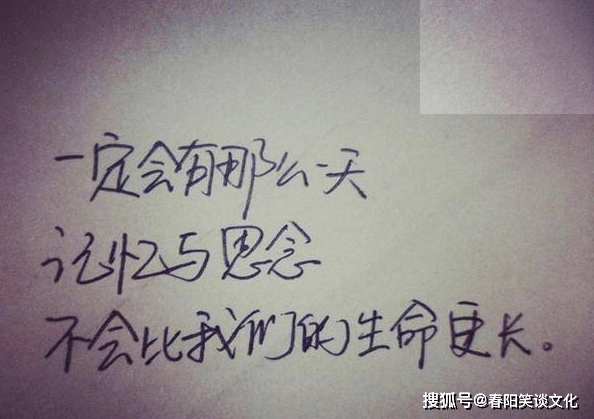 一定会有那么一天
记忆与思念
不会比我们的生命更长。
搜狐号@春阳笑谈文化